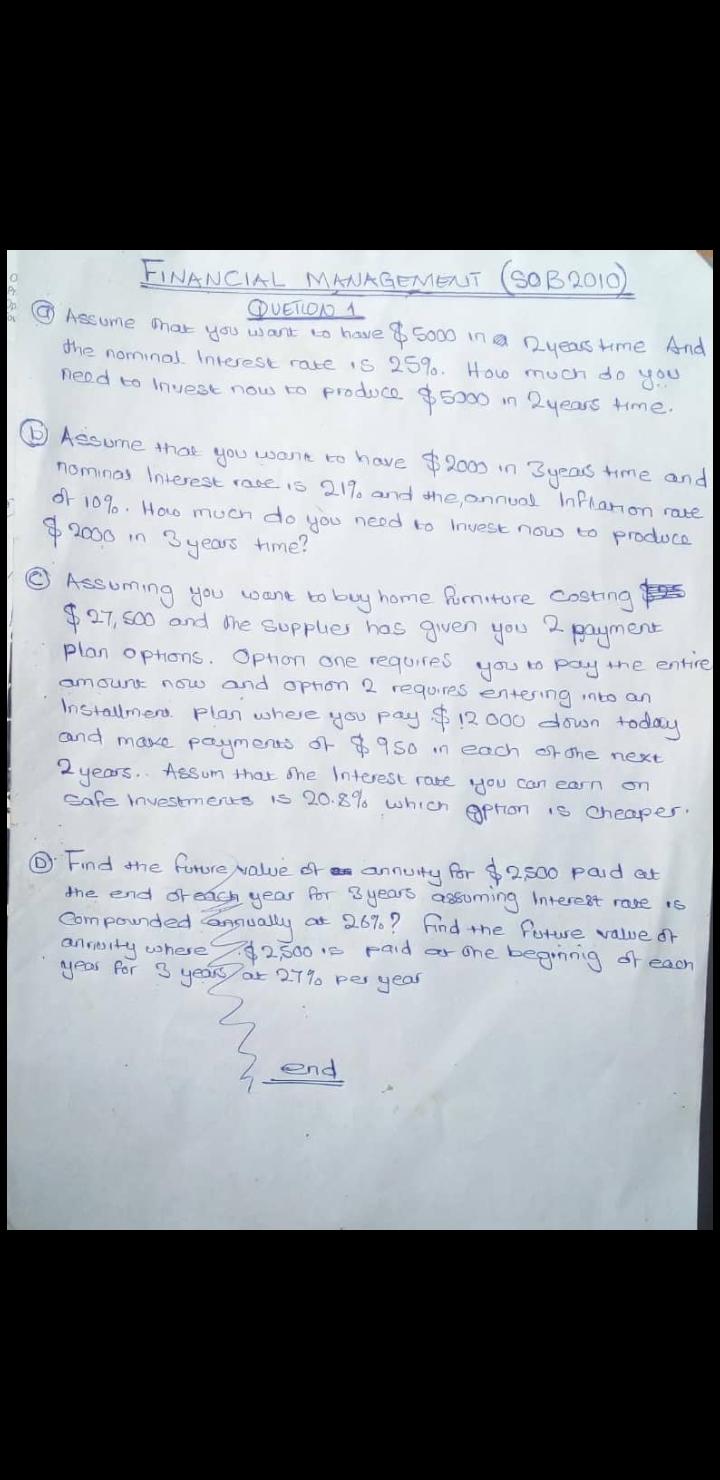 FINANCIAL MANAGEMENT (SOB2010)
QUETION 1
a Assume that you want to have $5000 in a 2years time And
the nominal Interest rate is 25%. How much do you
need to Invest now to produce $5000 in 2years time.
b Assume that you want to have $2000 in 3years time and
nominal Interest rate is 21% and the, annual Inflation rate
of 10%. How much do you need to Invest now to produce
$2000 in 3years time?
c Assuming you want to buy home furniture costing
$27,500 and the supplier has given you 2 payment
plan options. Option one requires you to pay the entire
amount now and option 2 requires entering into an
Installment plan where you pay $12000 down today
and make payments of $950 in each of the next
2years.. Assum that the Interest rate you can earn on
safe Investments is 20.8% which option is cheaper.
D. Find the future value of annuity for $2,500 paid at
the end of each year for 3years assuming Interest rate is
compounded annually at 26%? Find the future value of
annuity where $2,500 is paid at the beginnig of each
year for 3 years at 27% per year
end